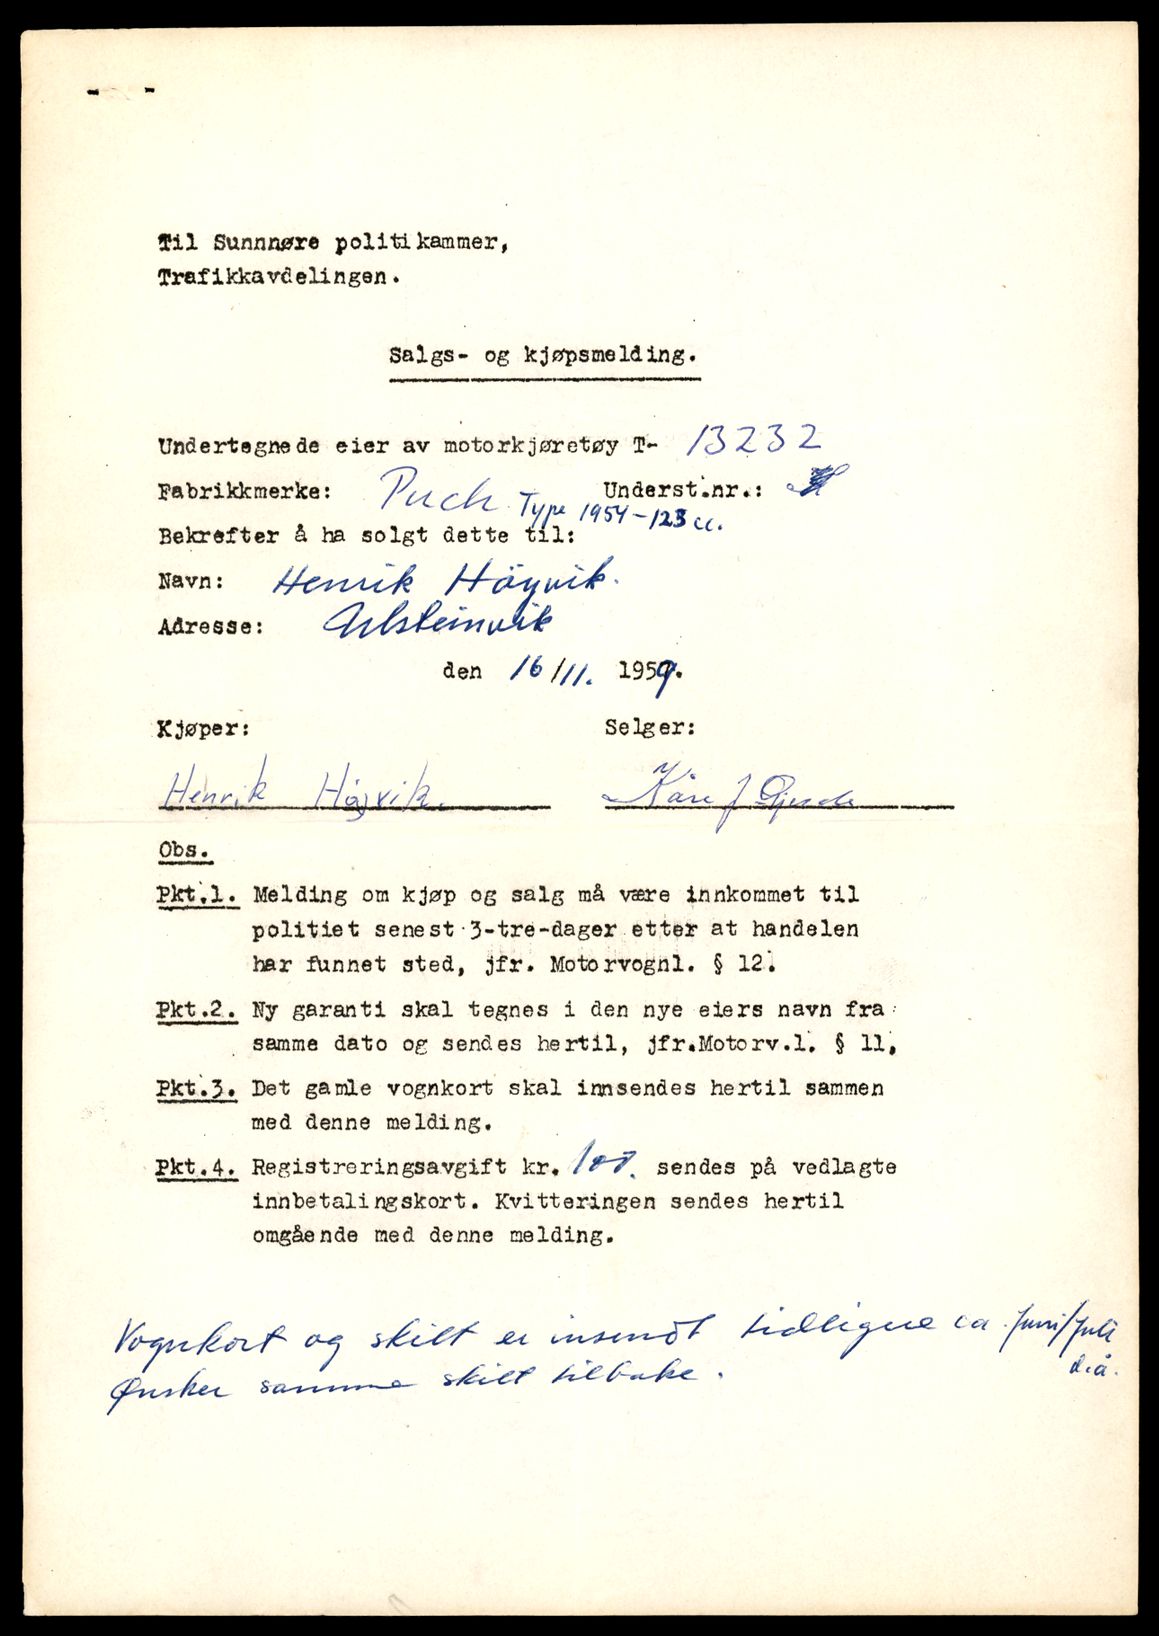 Til Sunnnøre politikammer,
Trafikkavdelingen.
Salgs- og kjøpsmelding.
Undertegnede eier av motorkjøretøy T- 13232
Fabrikkmerke: Puch Type 1954-123 cc. Underst.nr.:
Bekrefter å ha solgt dette til:
Navn: Henrik Höyvik.
Adresse: Ulsteinvik
den 16/11. 1959.
Kjøper: Selger:
Henrik Høyvik. Kåre J
Obs.
Pkt.1. Melding om kjøp og salg må være innkommet til
politiet senest 3-tre-dager etter at handelen
har funnet sted, jfr. Motorvognl. § 12.
Pkt.2. Ny garanti skal tegnes i den nye eiers navn fra
samme dato og sendes hertil, jfr.Motorv.l. § 11.
Pkt.3. Det gamle vognkort skal innsendes hertil sammen
med denne melding.
Pkt.4. Registreringsavgift kr. 100. sendes på vedlagte
innbetalingskort. Kvitteringen sendes hertil
omgående med denne melding.
Vognkort og skilt er insendt tidligere ca. juni/juli
d.å.
Ønsker samme skilt tilbake.